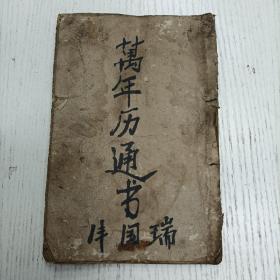 萬年历通书
瑞国